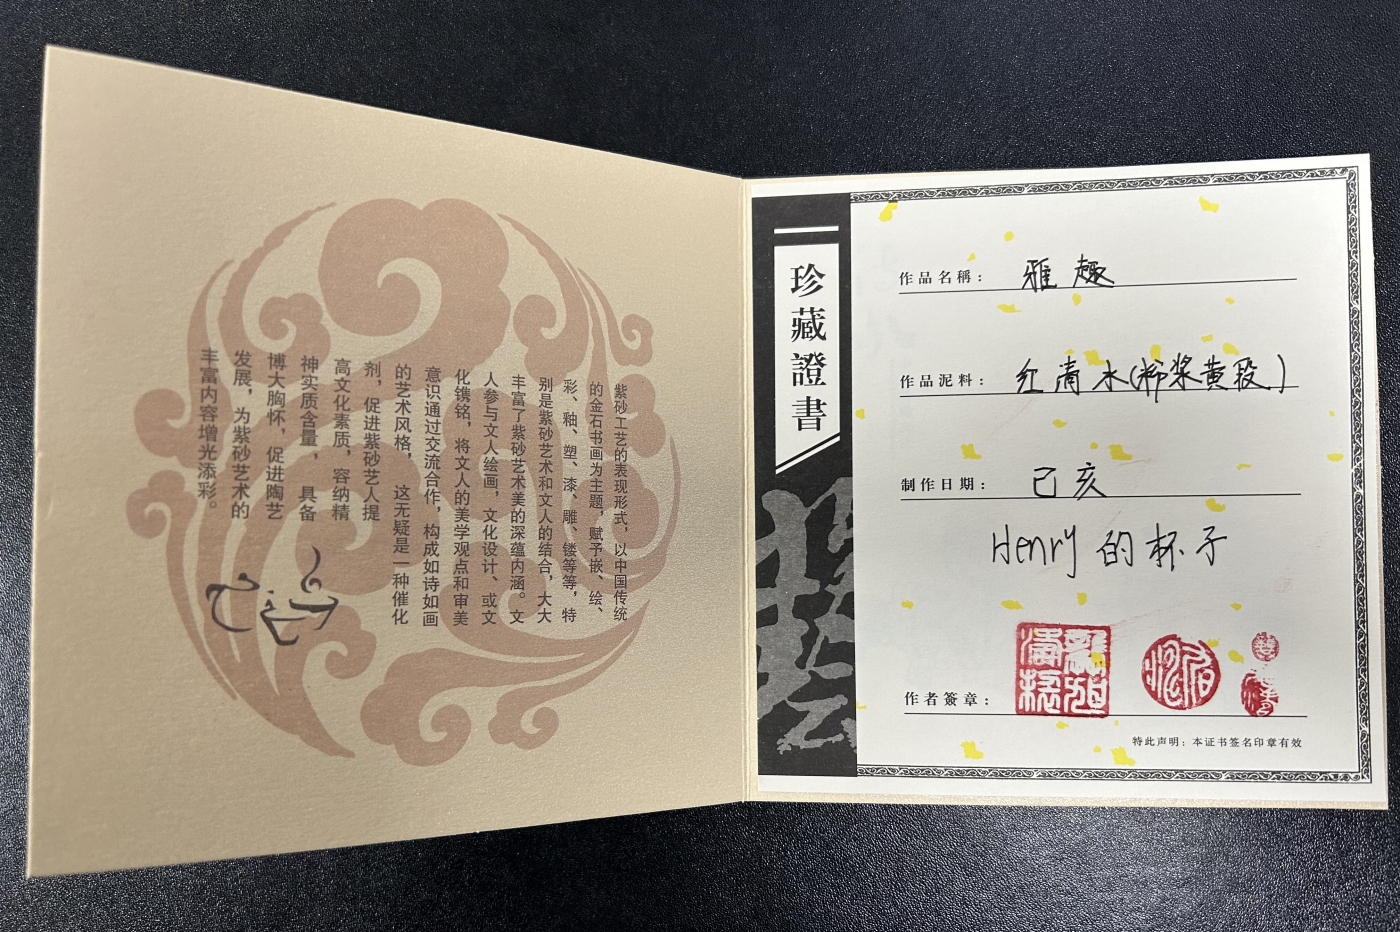 紫砂工艺的表现形式，以中国传统
的金石书画为主题，赋予嵌、绘、
彩、釉、塑、漆、雕、镂等等，特
别是紫砂艺术和文人的结合，大大
丰富了紫砂艺术美的深蕴内涵。文
人参与文人绘画，文化设计、或文
化镌铭，将文人的美学观点和审美
意识通过交流合作，构成如诗如画
的艺术风格，这无疑是一种催化
剂，促进紫砂艺人提
高文化素质，容纳精
神实质含量，具备
博大胸怀，促进陶艺
发展，为紫砂艺术的
丰富内容增光添彩。
珍藏證書
作品名稱：雅趣
作品泥料：红清水(粉浆黄段)
制作日期：己亥
Henry的杯子
作者簽章：
特此声明：本证书签名印章有效